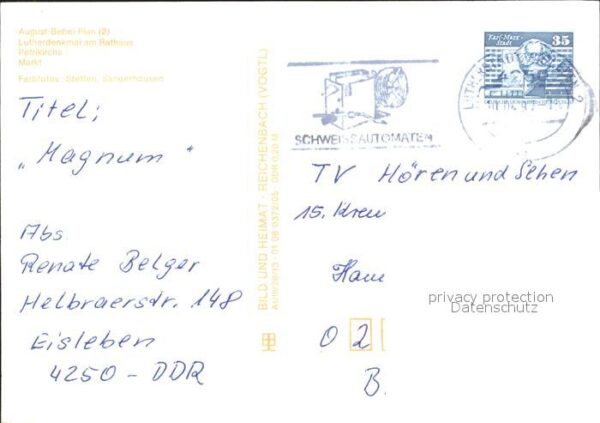 August-Bebel-Plan (2)
Lutherdenkmal am Rathaus
Petrikirche
Markt
Farbfotos: Steffen, Sangerhausen
Titel:
„Magnum“
Abs.
Renate Belger
Helbraerstr. 148
Eisleben
4250 - DDR
BILD UND HEIMAT · REICHENBACH (VOGTL)
01 06 0372/05 · DDR 0,20 M
SCHWEISSAUTOMATEN
Karl-Marx-
Stadt
35
LUTHERSTADT EISLEBEN 2
4250
TV Hören und Sehen
15. Kreu
Ham
privacy protection
Datenschutz
0 2
B.